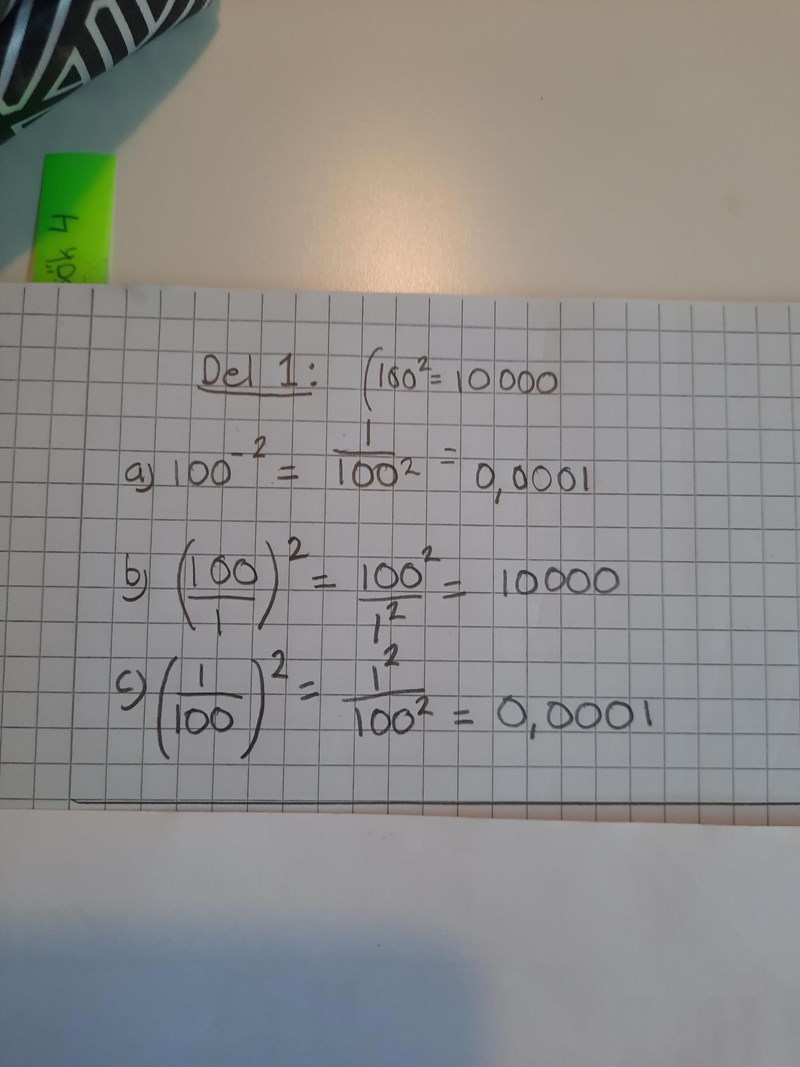 Del 1: (100² = 10000
a) 100⁻² = 1/100² = 0,0001
b) (100/1)² = 100²/1² = 10000
c) (1/100)² = 1²/100² = 0,0001